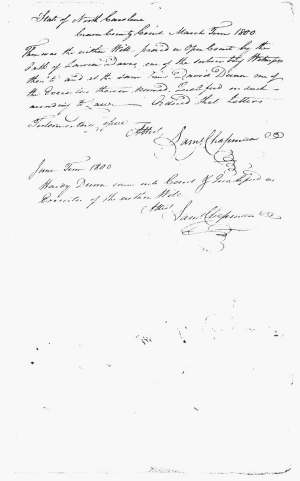 State of North Carolina
County Court March Term 1800
Then was the within Will proved in Open Court by the
Oath of one of the subscribing Witnesses
and at the same time one of
the therein named, Qualified as such
according to Law Ordered that Letters
Testamentary Issue Attest
Saml Chapman
June Term 1800
Hardy came into Court & Qualified as
Executor of the within Will
Attest
Saml Chapman